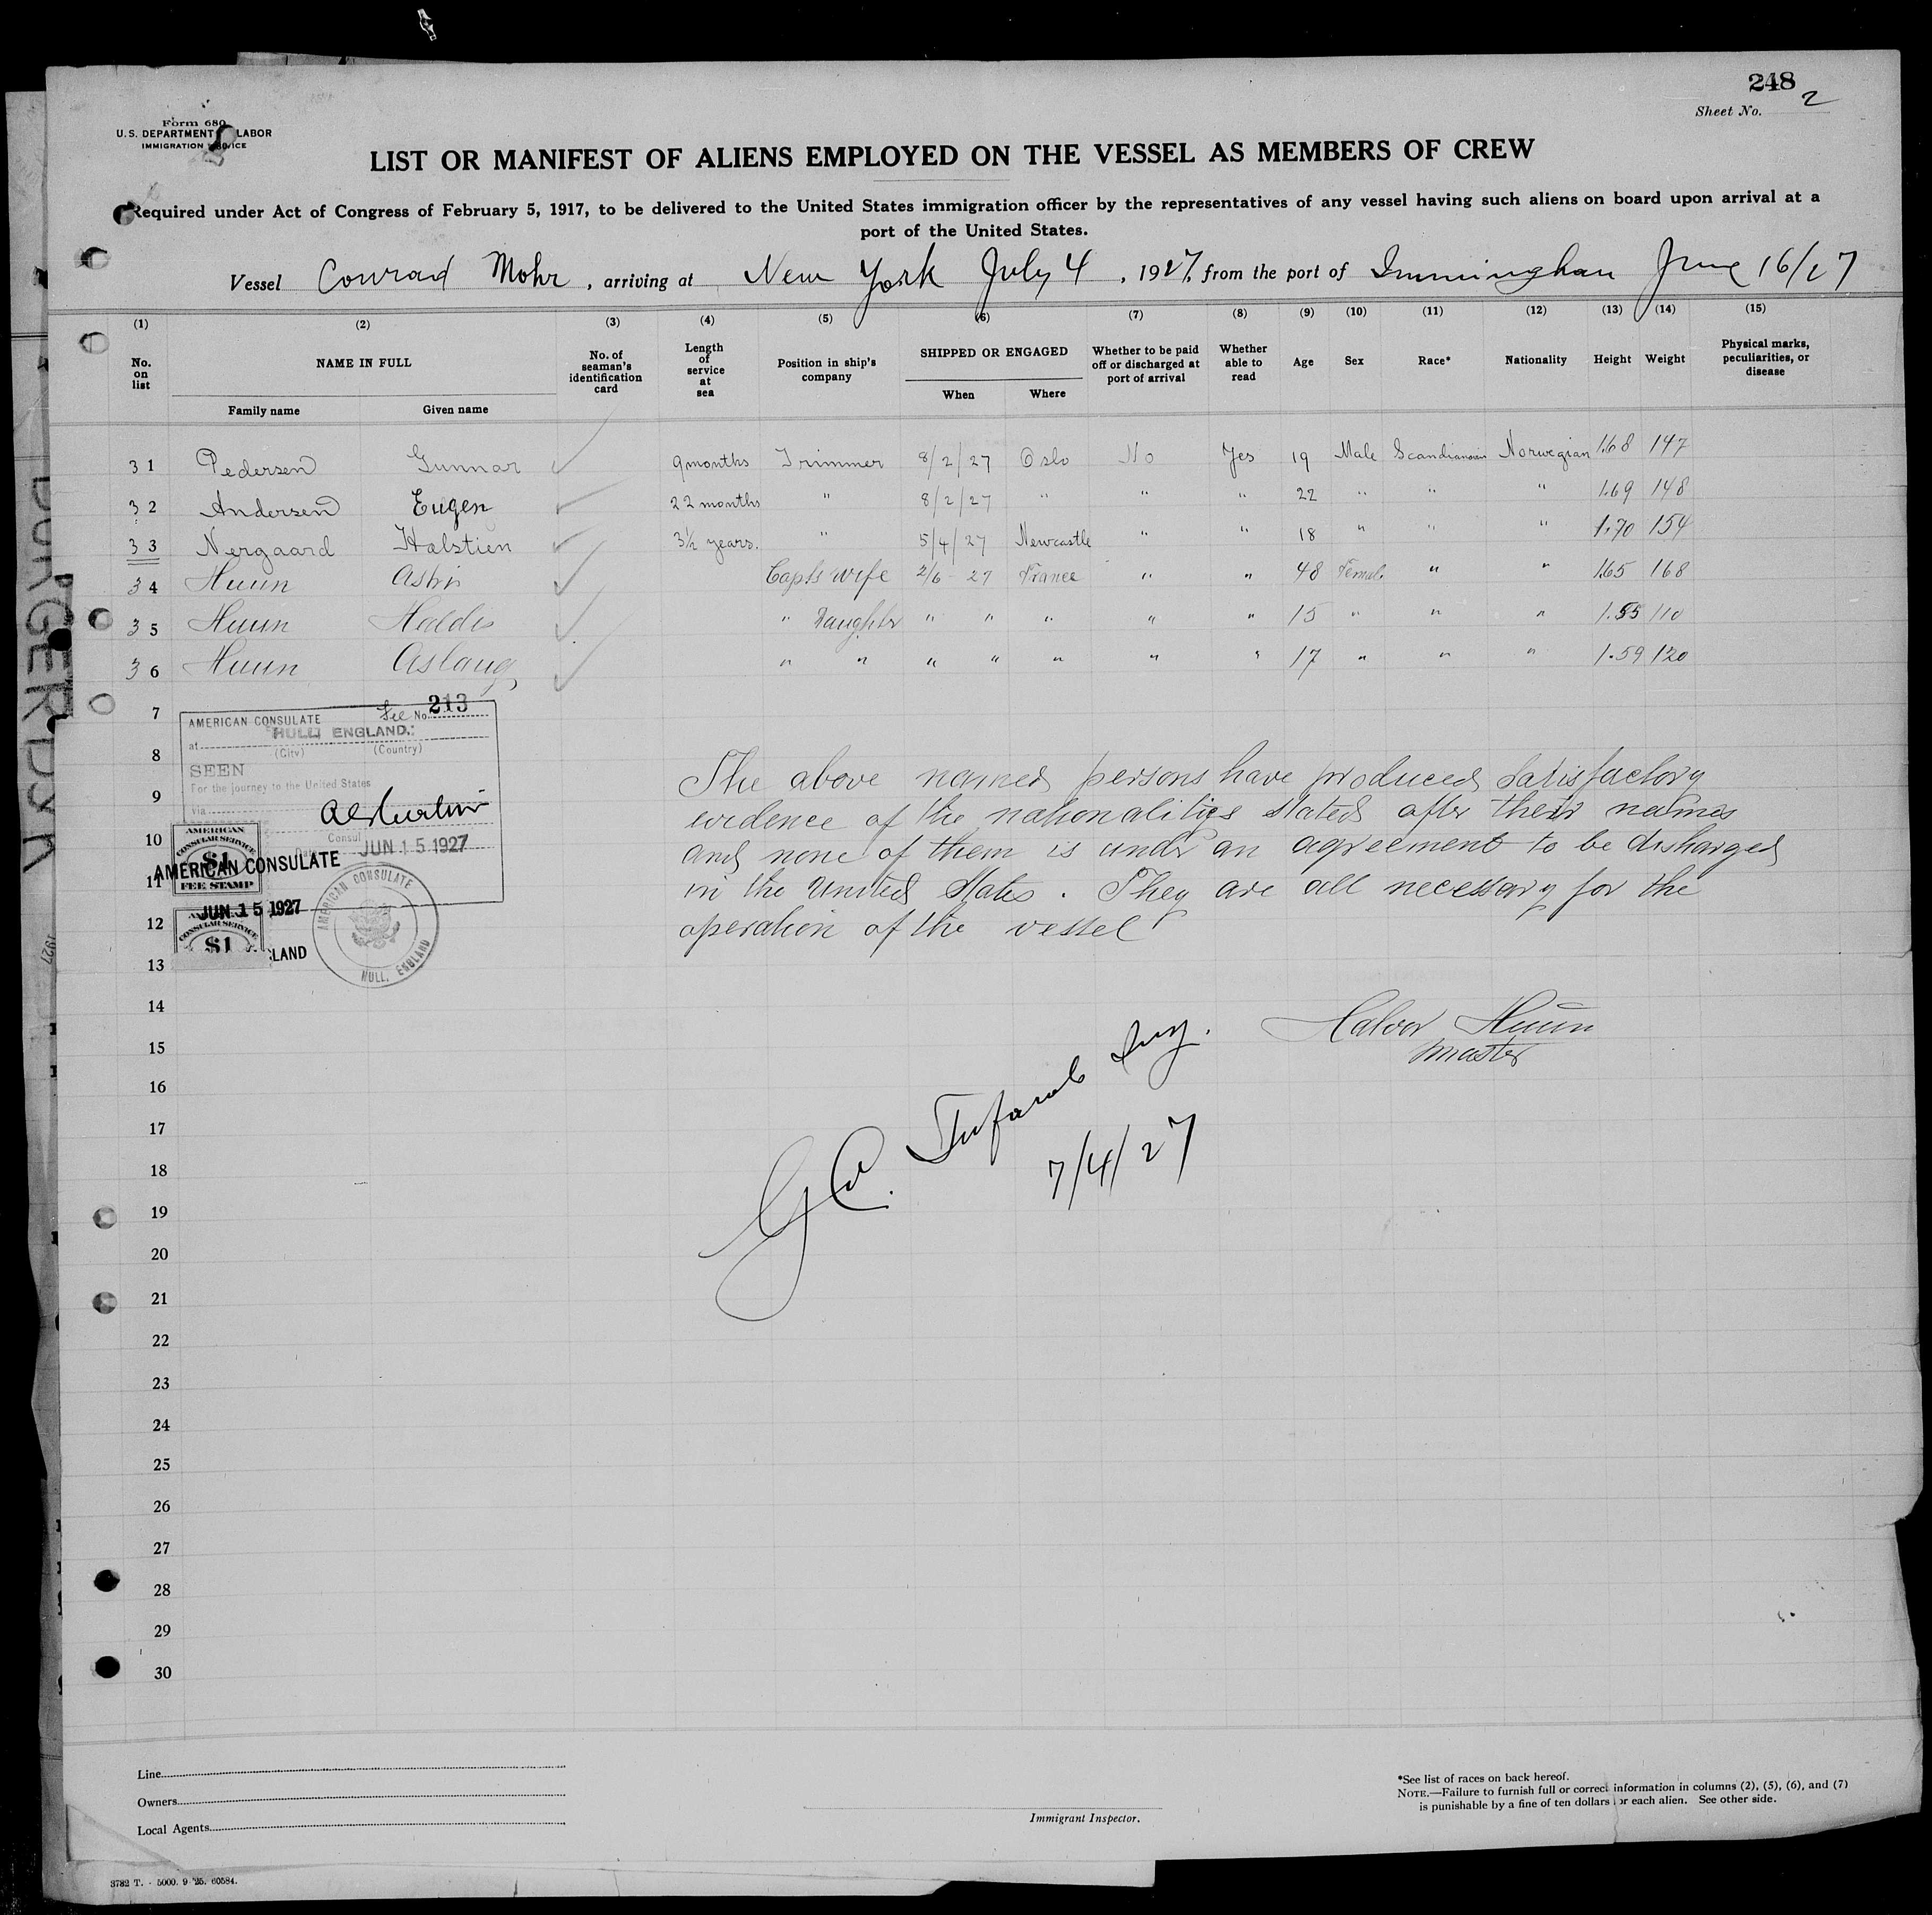 248
Sheet No. 2
Form 680
U. S. DEPARTMENT LABOR
IMMIGRATION SERVICE
LIST OR MANIFEST OF ALIENS EMPLOYED ON THE VESSEL AS MEMBERS OF CREW
Required under Act of Congress of February 5, 1917, to be delivered to the United States immigration officer by the representatives of any vessel having such aliens on board upon arrival at a
port of the United States.
Vessel Conrad Mohr, arriving at New York July 4, 1927, from the port of Immingham June 16/27
(1) (2) (3) (4) (5) (6) (7) (8) (9) (10) (11) (12) (13) (14) (15)
No. on list NAME IN FULL Family name Given name No. of seaman's identification card Length of service at sea Position in ship's company SHIPPED OR ENGAGED When Where Whether to be paid off or discharged at port of arrival Whether able to read Age Sex Race* Nationality Height Weight Physical marks, peculiarities, or disease
31 Pedersen Gunnar 9 months Trimmer 8/2/27 Oslo No Yes 19 Male Scandinavian Norwegian 1.68 147
32 Andersen Eugen 22 months " 8/2/27 " " " 22 " " " 1.69 148
33 Nergaard Halstien 3½ years. " 5/4/27 Newcastle " " 18 " " " 1.70 154
34 Huun Capts wife 2/6-27 France " " 48 Female " " 1.65 168
35 Huun " Daughter " " " " " 15 " " " 1.55 110
36 Huun Aslaug " " " " " " " 17 " " " 1.59 120
7
AMERICAN CONSULATE Fee No. 213
at HULL ENGLAND.
(City) (Country)
8
SEEN
For the journey to the United States
9
Via
10
Consul
Date JUN 15 1927
AMERICAN CONSULAR SERVICE $1 FEE STAMP
AMERICAN CONSULATE
11
JUN 15 1927
12
CONSULAR SERVICE $1
13
GLAND
AMERICAN CONSULATE HULL, ENGLAND
The above named persons have produced satisfactory
evidence of the nationalities stated after their names
and none of them is under an agreement to be discharged
in the United States. They are all necessary for the
operation of the vessel
14
Halvor Huun
15
master
16
17
7/4/27
18
19
20
21
22
23
24
25
26
27
28
29
30
Line
Owners
Local Agents
Immigrant Inspector.
*See list of races on back hereof.
NOTE.—Failure to furnish full or correct information in columns (2), (5), (6), and (7)
is punishable by a fine of ten dollars for each alien. See other side.
3782 T. - 5000. 9 '25. 60584.
1927